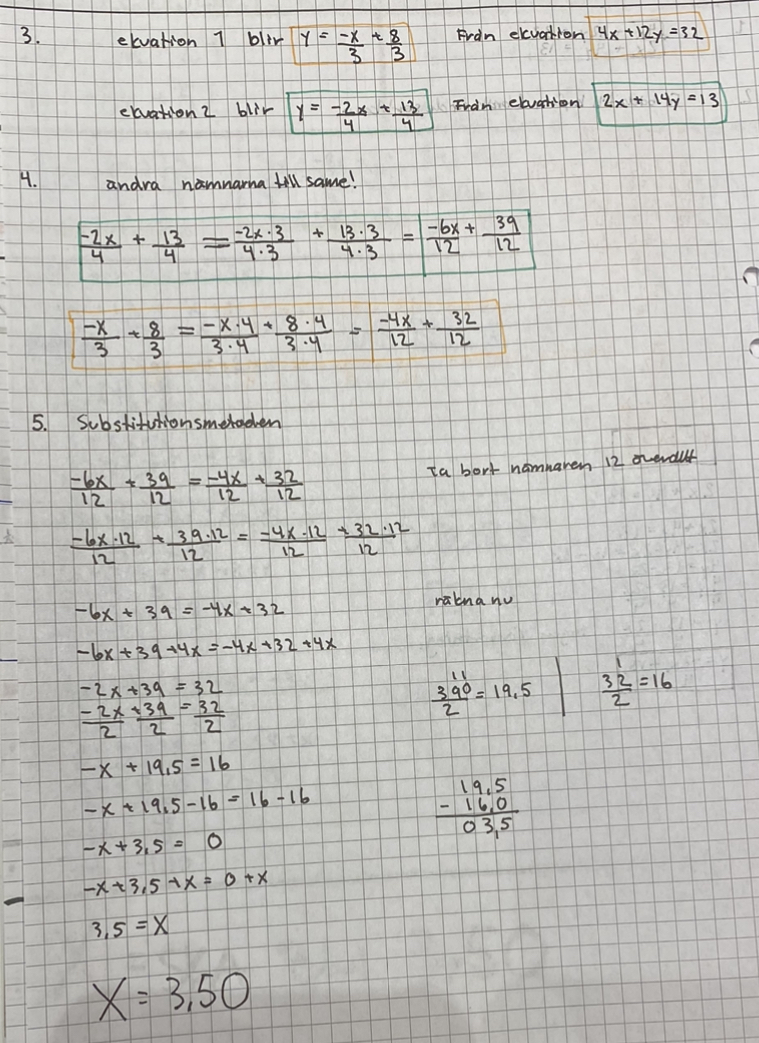 3. ekvation 1 blir y = -x/3 + 8/3 Från ekvation 4x+12y=32
ekvation 2 blir y = -2x/4 + 13/4 Från ekvation 2x + 14y = 13
4. andra nämnarna till same!
-2x/4 + 13/4 = -2x·3/4·3 + 13·3/4·3 = -6x/12 + 39/12
-x/3 + 8/3 = -x·4/3·4 + 8·4/3·4 = -4x/12 + 32/12
5. Substitutionsmetoden
-6x/12 + 39/12 = -4x/12 + 32/12 ta bort nämnaren 12 överallt
-6x·12/12 + 39·12/12 = -4x·12/12 + 32·12/12
-6x + 39 = -4x + 32 räkna nu
-6x + 39 + 4x = -4x + 32 + 4x
-2x + 39 = 32
-2x/2 + 39/2 = 32/2 39,0/2 = 19,5 | 32/2 = 16
-x + 19,5 = 16
-x + 19,5 - 16 = 16 - 16
19,5
- 16,0
03,5
-x + 3,5 = 0
-x + 3,5 + x = 0 + x
3,5 = x
X = 3,50